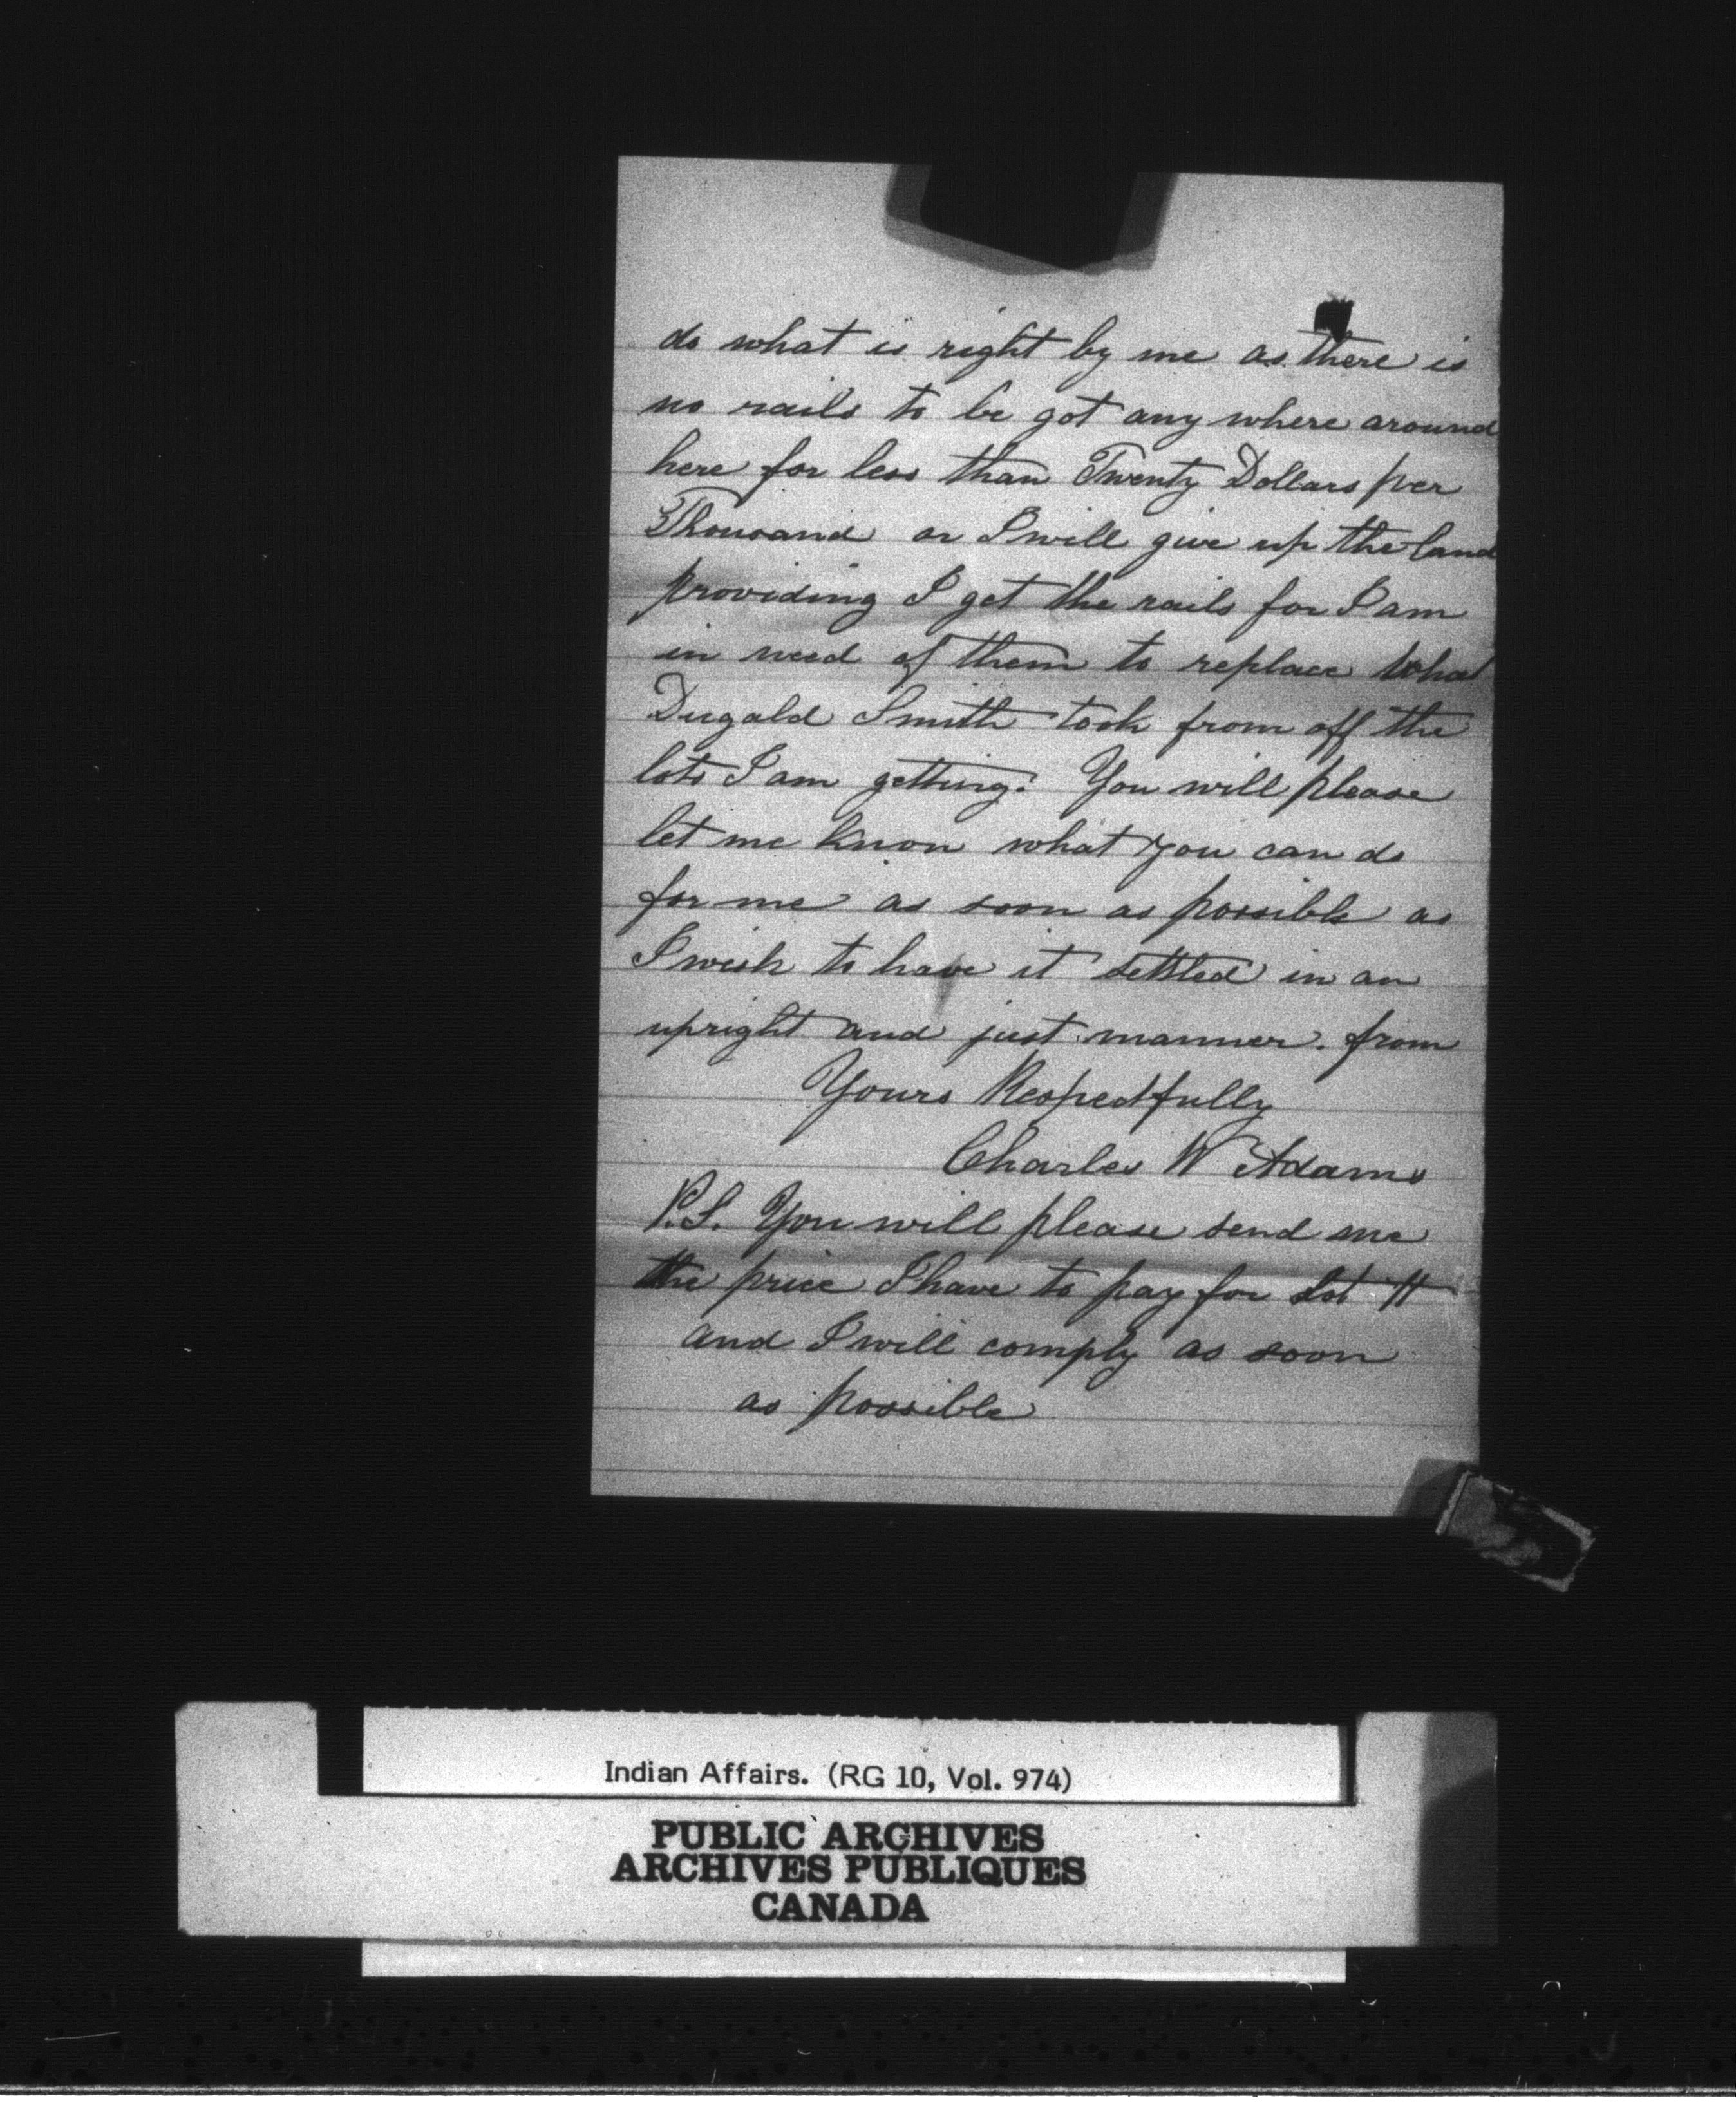 do what is right by me as there is
no rails to be got any where around
here for less than Twenty Dollars per
Thousand or I will give up the land
providing I get the rails for I am
in need of them to replace what
Dugald Smith took from off the
lots I am getting. You will please
let me know what you can do
for me as soon as possible as
I wish to have it settled in an
upright and just manner. from
Yours Respectfully
Charles W Adams
P.S. You will please send me
the price I have to pay for Lot
and I will comply as soon
as possible
Indian Affairs. (RG 10, Vol. 974)
PUBLIC ARCHIVES
ARCHIVES PUBLIQUES
CANADA